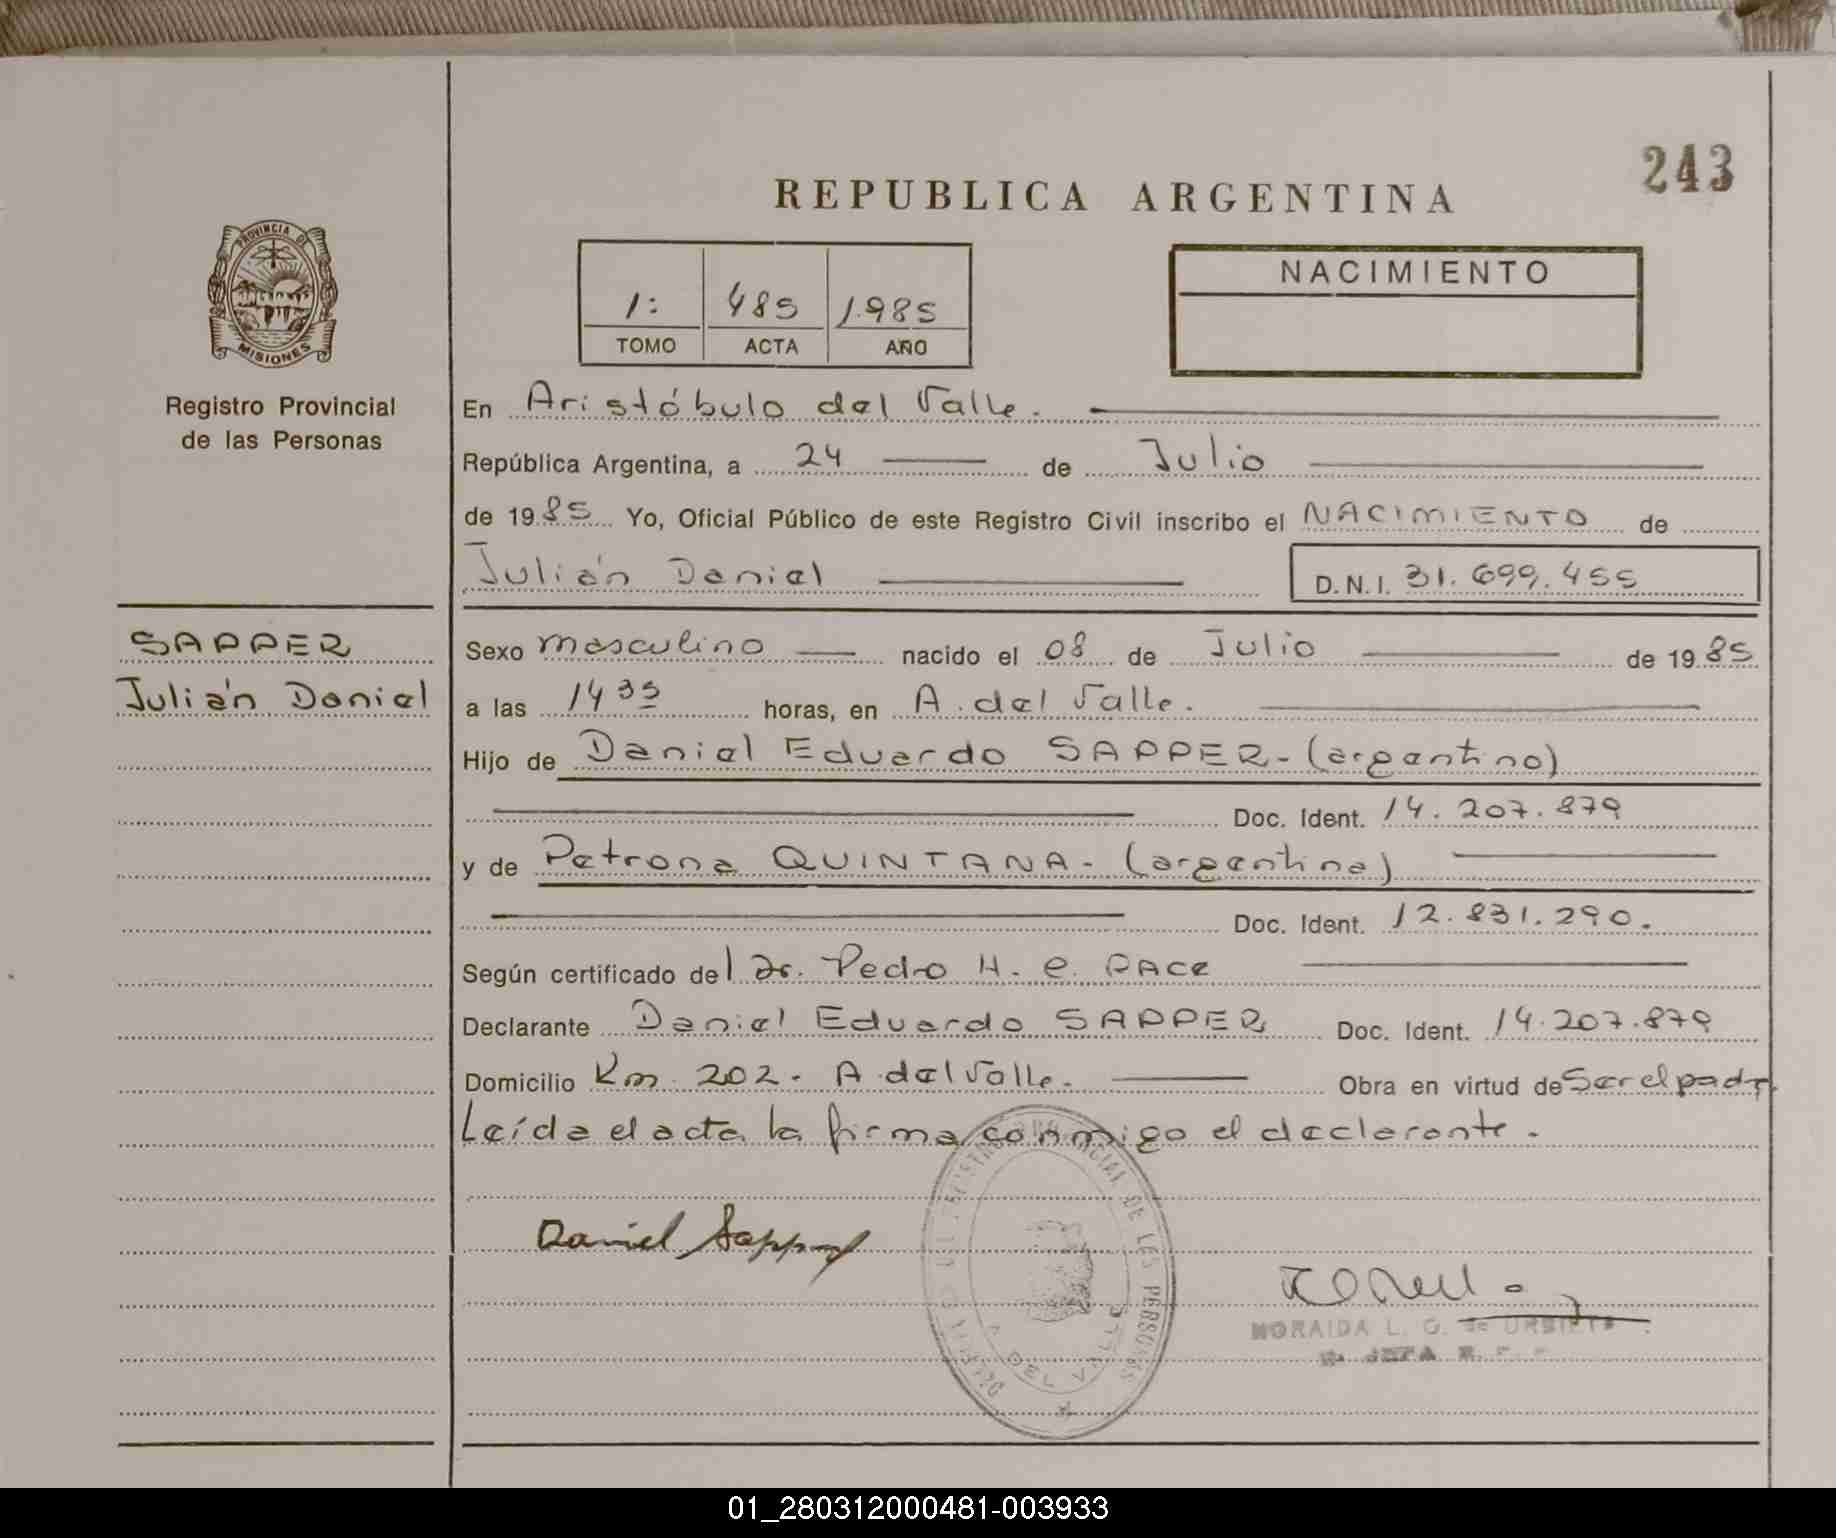 243
REPUBLICA ARGENTINA
PROVINCIA DE
MISIONES
Registro Provincial
de las Personas
1: 485 1.985
TOMO ACTA AÑO
NACIMIENTO
En Aristóbulo del Valle.
República Argentina, a 24 de Julio
de 1985 Yo, Oficial Público de este Registro Civil inscribo el NACIMIENTO de
Julián Daniel D.N.I. 31.699.455
SAPPER
Julián Daniel
Sexo masculino nacido el 08 de Julio de 1985
a las 14 35 horas, en A. del Valle.
Hijo de Daniel Eduardo SAPPER - (argentino)
Doc. Ident. 14.207.879
y de Petrona QUINTANA - (argentina)
Doc. Ident. 12.831.290.
Según certificado del Dr. Pedro H. C. PACE
Declarante Daniel Eduardo SAPPER Doc. Ident. 14.207.879
Domicilio Km 202 - A. del Valle. Obra en virtud de Ser el padre
Leída el acta la firma conmigo el declarante.
Daniel Sapper
PROVINCIAL DE LAS PERSONAS
A. DEL VALLE
MORAIDA L. G. de URBIETA
JEFA R.
01_280312000481-003933